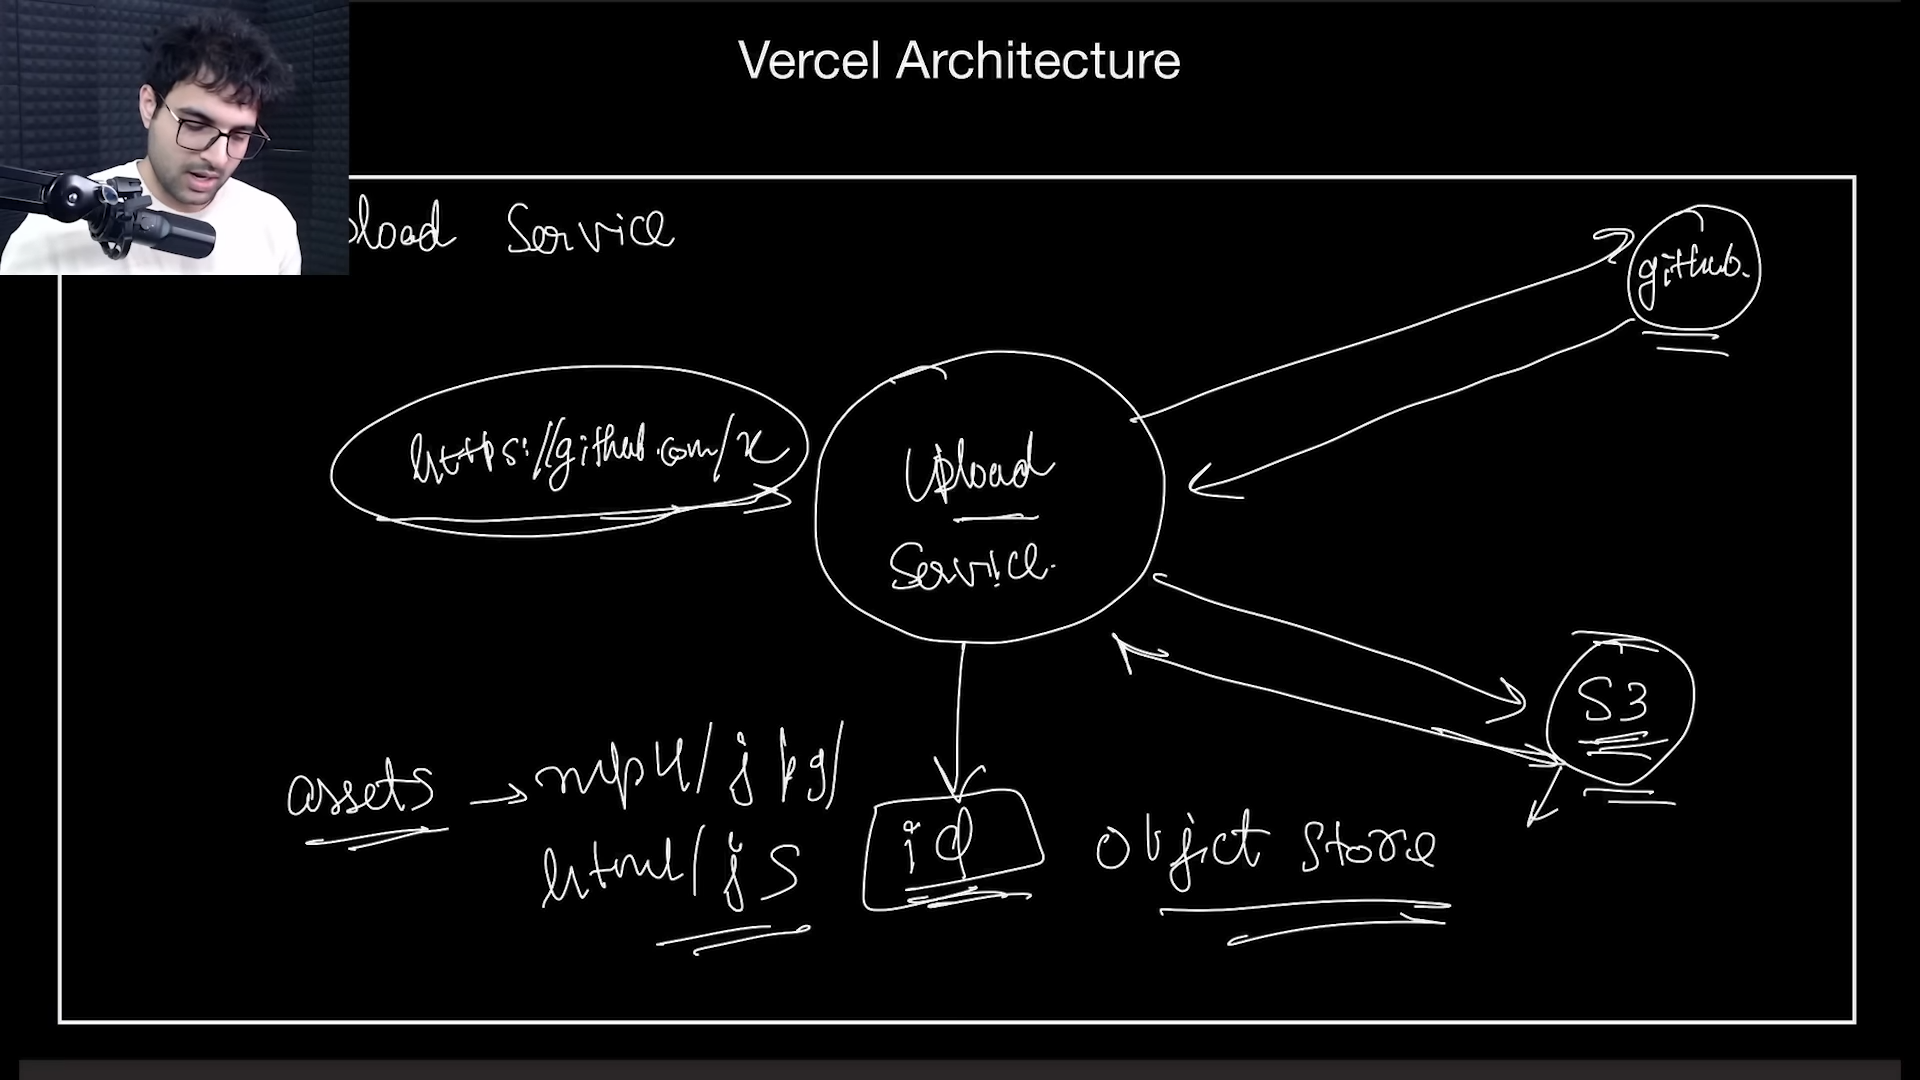 Vercel Architecture
pload Service
github.
https://github.com/x
Upload
Service.
S3
assets → mp4/jpg/
html/js
id
Object Store